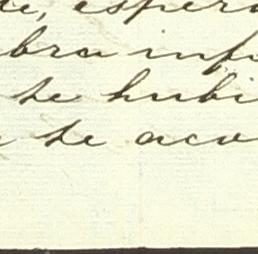 te, esper
bra inf
se hubi
se aco